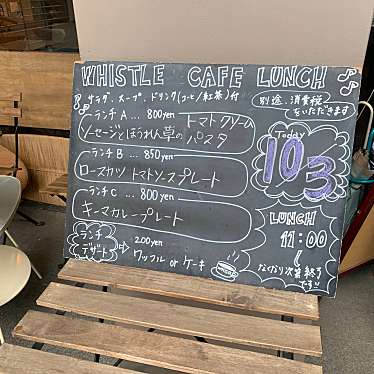 WHISTLE CAFE LUNCH
サラダ、スープ、ドリンク(コーヒ/紅茶)付
別途、消費税
をいただきます
ランチA ... 800yen トマトクリーム
ソーセージとほうれん草のパスタ
ランチB ... 850yen
ロースカツ トマトソースプレート
ランチC ... 800yen
キーマカレープレート
Today
10 3
LUNCH
11:00
なくなり次第終了
です!!
ランチ
デザート
200yen
ワッフル or ケーキ